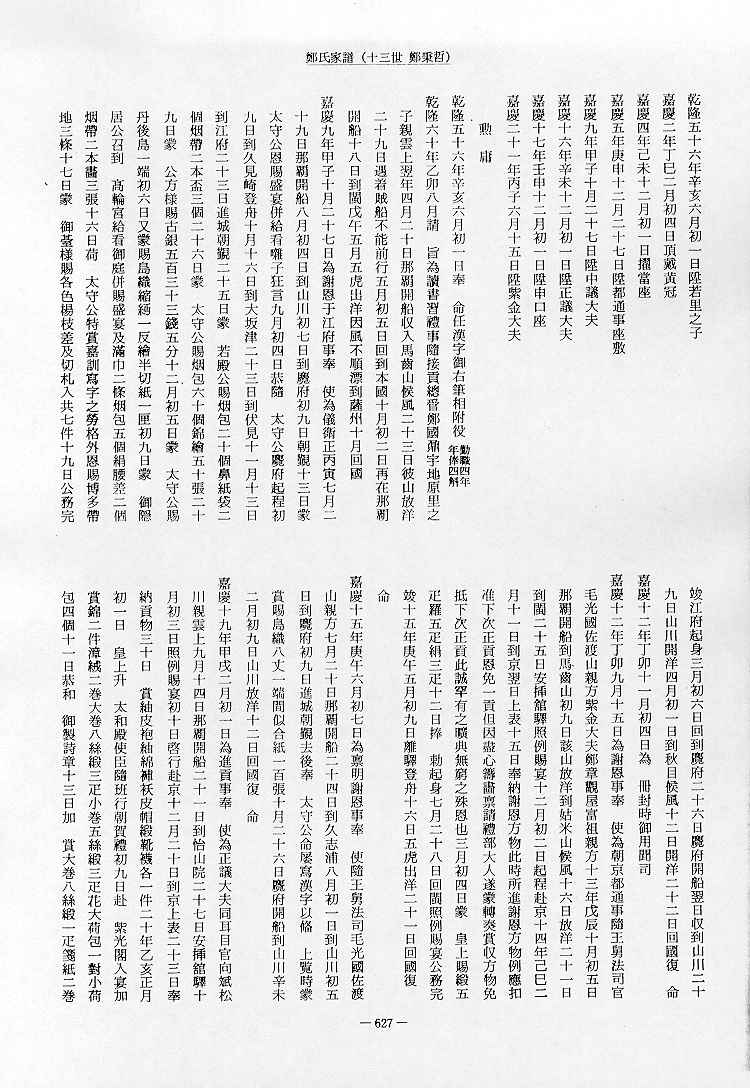 鄭氏家譜（十三世 鄭秉哲）
乾隆五十六年辛亥六月初一日陞若里之子
嘉慶二年丁巳二月初四日頂戴黃冠
嘉慶四年己未十二月初一日擢當座
嘉慶五年庚申十二月二十七日陞都通事座敷
嘉慶九年甲子十月二十七日陞中議大夫
嘉慶十六年辛未十二月初一日陞正議大夫
嘉慶十七年壬申十二月初一日陞申口座
嘉慶二十一年丙子六月十五日陞紫金大夫
勲庸
乾隆五十六年辛亥六月初一日奉　命任漢字御右筆相附役勤職四年年俸四斛
乾隆六十年乙卯八月請　旨為讀書習禮事隨接貢總管鄭國鼎宇地原里之
子親雲上翌年四月二十日那覇開船収入馬齒山候風二十三日彼山放洋
二十九日遇着賊船不能前行五月初五日回到本國十月初二日再在那覇
開船十八日到閩戊午五月五虎出洋因風不順漂到薩州十月回國
嘉慶九年甲子十月二十七日為謝恩于江府事奉　使為儀衛正丙寅七月二
十九日那覇開船八月初四日到山川初七日到麑府初九日朝覲十三日蒙
太守公恩賜盛宴併給看囃子狂言九月初四日恭隨　太守公麑府起程初
九日到久見崎登舟十月十六日到大坂津二十三日到伏見十一月十三日
到江府二十三日進城朝覲二十五日蒙　若殿公賜烟包二十個鼻紙袋二
個烟帶二本盃三個二十六日蒙　太守公賜烟包六十個錦繪五十張二十
九日蒙　公方様賜古銀五百三十三錢五分十二月初五日蒙　太守公賜
丹後島一端初六日又蒙賜島織縮緬一反繪半切紙一匣初九日蒙　御隱
居公召到　高輪宮給看御庭併賜盛宴及滿巾二條烟包五個絹腰差二個
烟帶二本畫三張十六日荷　太守公特賞嘉訓寫字之勞格外恩賜博多帶
地三條十七日蒙　御臺様賜各色楊枝差及切札入共七件十九日公務完
竣江府起身三月初六日回到麑府二十六日麑府開船翌日収到山川二十
九日山川開洋四月初一日到秋目候風十二日開洋二十二日回國復　命
嘉慶十二年丁卯十一月初四日為　冊封時御用聞司
嘉慶十二年丁卯九月十五日為謝恩事奉　使為朝京都通事隨王舅法司官
毛光國佐渡山親方紫金大夫鄭章觀屋富祖親方十三年戊辰十月初五日
那覇開船到馬齒山初九日該山放洋到姑米山候風十六日放洋二十一日
到閩二十五日安挿舘驛照例賜宴十二月初二日起程赴京十四年己巳二
月十一日到京翌日上表十五日奉納謝恩方物此時所進謝恩方物例應扣
准下次正貢恩免一貢但因盡心籌畫禀請禮部大人遂蒙轉奏賞収方物免
抵下次正貢此誠罕有之曠典無窮之殊恩也三月初四日蒙　皇上賜緞五
疋羅五疋絹三疋十二日捧　勅起身七月二十八日回閩照例賜宴公務完
竣十五年庚午五月初九日離驛登舟十六日五虎出洋二十一日回國復
命
嘉慶十五年庚午六月初七日為禀明謝恩事奉　使隨王舅法司毛光國佐渡
山親方七月二十日那覇開船二十四日到久志浦八月初一日到山川初五
日到麑府初九日進城朝覲去後奉　太守公命屡寫漢字以條　上覽時蒙
賞賜島織八丈一端間似合紙一百張十月二十六日麑府開船到山川辛未
二月初九日山川放洋十二日回國復　命
嘉慶十九年甲戌二月初一日為進貢事奉　使為正議大夫同耳目官向斌松
川親雲上九月十四日那覇開船二十一日到怡山院二十七日安挿舘驛十
月初三日照例賜宴初十日啓行赴京十二月二十日到京上表二十三日奉
納貢物三十日　賞紬皮袍紬綿褲袄皮帽緞靴襪各一件二十年乙亥正月
初一日　皇上升　太和殿使臣隨班行朝賀禮初九日赴　紫光閣入宴加
賞錦二件漳絨二巻大巻八絲緞三疋小巻五絲緞三疋花大荷包一對小荷
包四個十一日恭和　御製詩章十三日加　賞大巻八絲緞一疋箋紙二巻
— 627 —